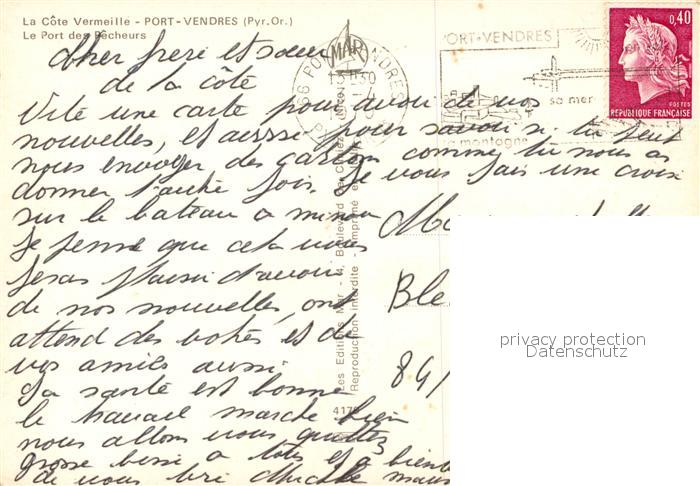 La Côte Vermeille - PORT-VENDRES (Pyr.Or.)
Le Port des Pêcheurs
Cher frere et sœur
de la côté
Vite une carte pour avoir de vos
nouvelles, et aussi pour savoir si tu peut
nous envoyer des gaston comme tu nous as
donner l'autre fois. Je vous fais une croix
sur le bateau a
Je pense que cela vous
feras plaisir d'avoir
de nos nouvelles, ont
attend des votres et de
vos amies aussi.
La santé est bonne
le travail marche bien
nous allons vous quittez
grosse bissi a tous et a bient
de vous
Les Editions Mar - 4, Boulevard des
Reproduction Interdite - Imprimé en
4175
MAR
66 PORT VENDRES
PORT-VENDRES
sa mer
sa montagne
0,40
POSTES
REPUBLIQUE FRANÇAISE
Ble
privacy protection
Datenschutz